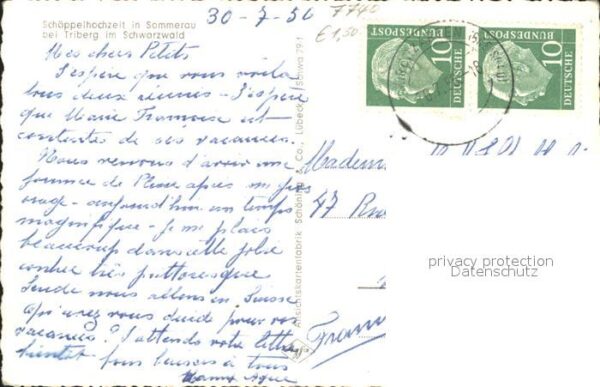 Schäppelhochzeit in Sommerau
bei Triberg im Schwarzwald
30-7-56
7740
€ 1,50
Mes chers Petits
J'espère que vous voilà
tous deux réunis - J'espère
que Marie Françoise est
contente de ses vacances.
Nous venons d'avoir une
journée de Pluie après un gros
orage - aujourd'hui un temps
magnifique - je me plais
beaucoup dans cette jolie
contrée très pittoresque
Lundi nous allons en Suisse
Qu'avez vous décidé pour vos
vacances? J'attends votre lettre
bientôt bons baisers à tous
Ansichtskartenfabrik Schöning & Co., Lübeck
Schwa 29
DEUTSCHE
BUNDESPOST
10
DEUTSCHE
BUNDESPOST
10
Madem
47 Rue
privacy protection
Datenschutz